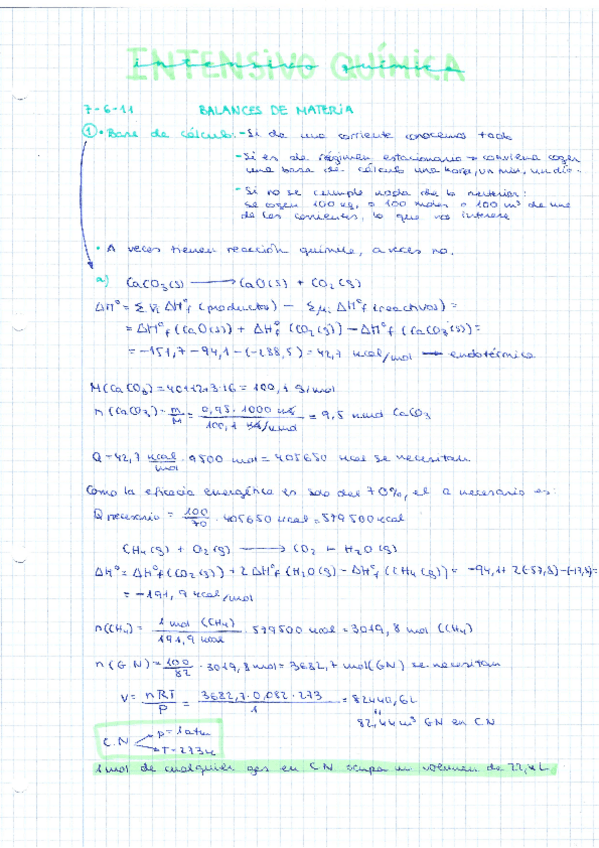 INTENSIVO QUÍMICA
intensivo química
7-6-11 BALANCES DE MATERIA
① • Base de cálculo: - Si de una corriente conocemos todo
- Si es de régimen estacionario → conviene coger
una base de cálculo una hora, un min, un día.
- Si no se cumple nada de lo anterior:
se cogen 100 kg, o 100 moles o 100 m³ de una
de las corrientes, lo que nos interese
• A veces tienen reacción química, a veces no.
a) CaCO₃(s) ⟶ CaO(s) + CO₂(g)
ΔH° = Σ νᵢ ΔH°f (productos) − Σ μᵢ ΔH°f (reactivos) =
= ΔH°f (CaO(s)) + ΔH°f (CO₂(g)) − ΔH°f (CaCO₃(s)) =
= −151,7 − 94,1 − (−288,5) = 42,7 kcal/mol → endotérmica
M(CaCO₃) = 40+12+3·16 = 100,1 g/mol
n(CaCO₃) = m/M = 0,95 · 1000 kg / 100,1 kg/kmol = 9,5 kmol CaCO₃
Q = 42,7 kcal/mol · 9500 mol = 405650 kcal se necesitan.
Como la eficacia energética es solo del 70%, el Q necesario es:
Q necesario = 100/70 · 405650 kcal = 579500 kcal
CH₄(g) + O₂(g) ⟶ CO₂ + H₂O(g)
ΔH° = ΔH°f (CO₂(g)) + 2 ΔH°f (H₂O(g) − ΔH°f (CH₄(g)) = −94,1 + 2(−57,8) − (−17,8) =
= −191,9 kcal/mol
n(CH₄) = 1 mol (CH₄) / 191,9 kcal · 579500 kcal = 3019,8 mol (CH₄)
n(GN) = 100/82 · 3019,8 mol = 3682,7 mol (GN) se necesitan
V = nRT/P = 3682,7 · 0,082 · 273 / 1 = 82440,6 L
"
82,44 m³ GN en C.N
C.N P = 1 atm
T = 273 K
1 mol de cualquier gas en C N ocupa un volumen de 22,4 L.